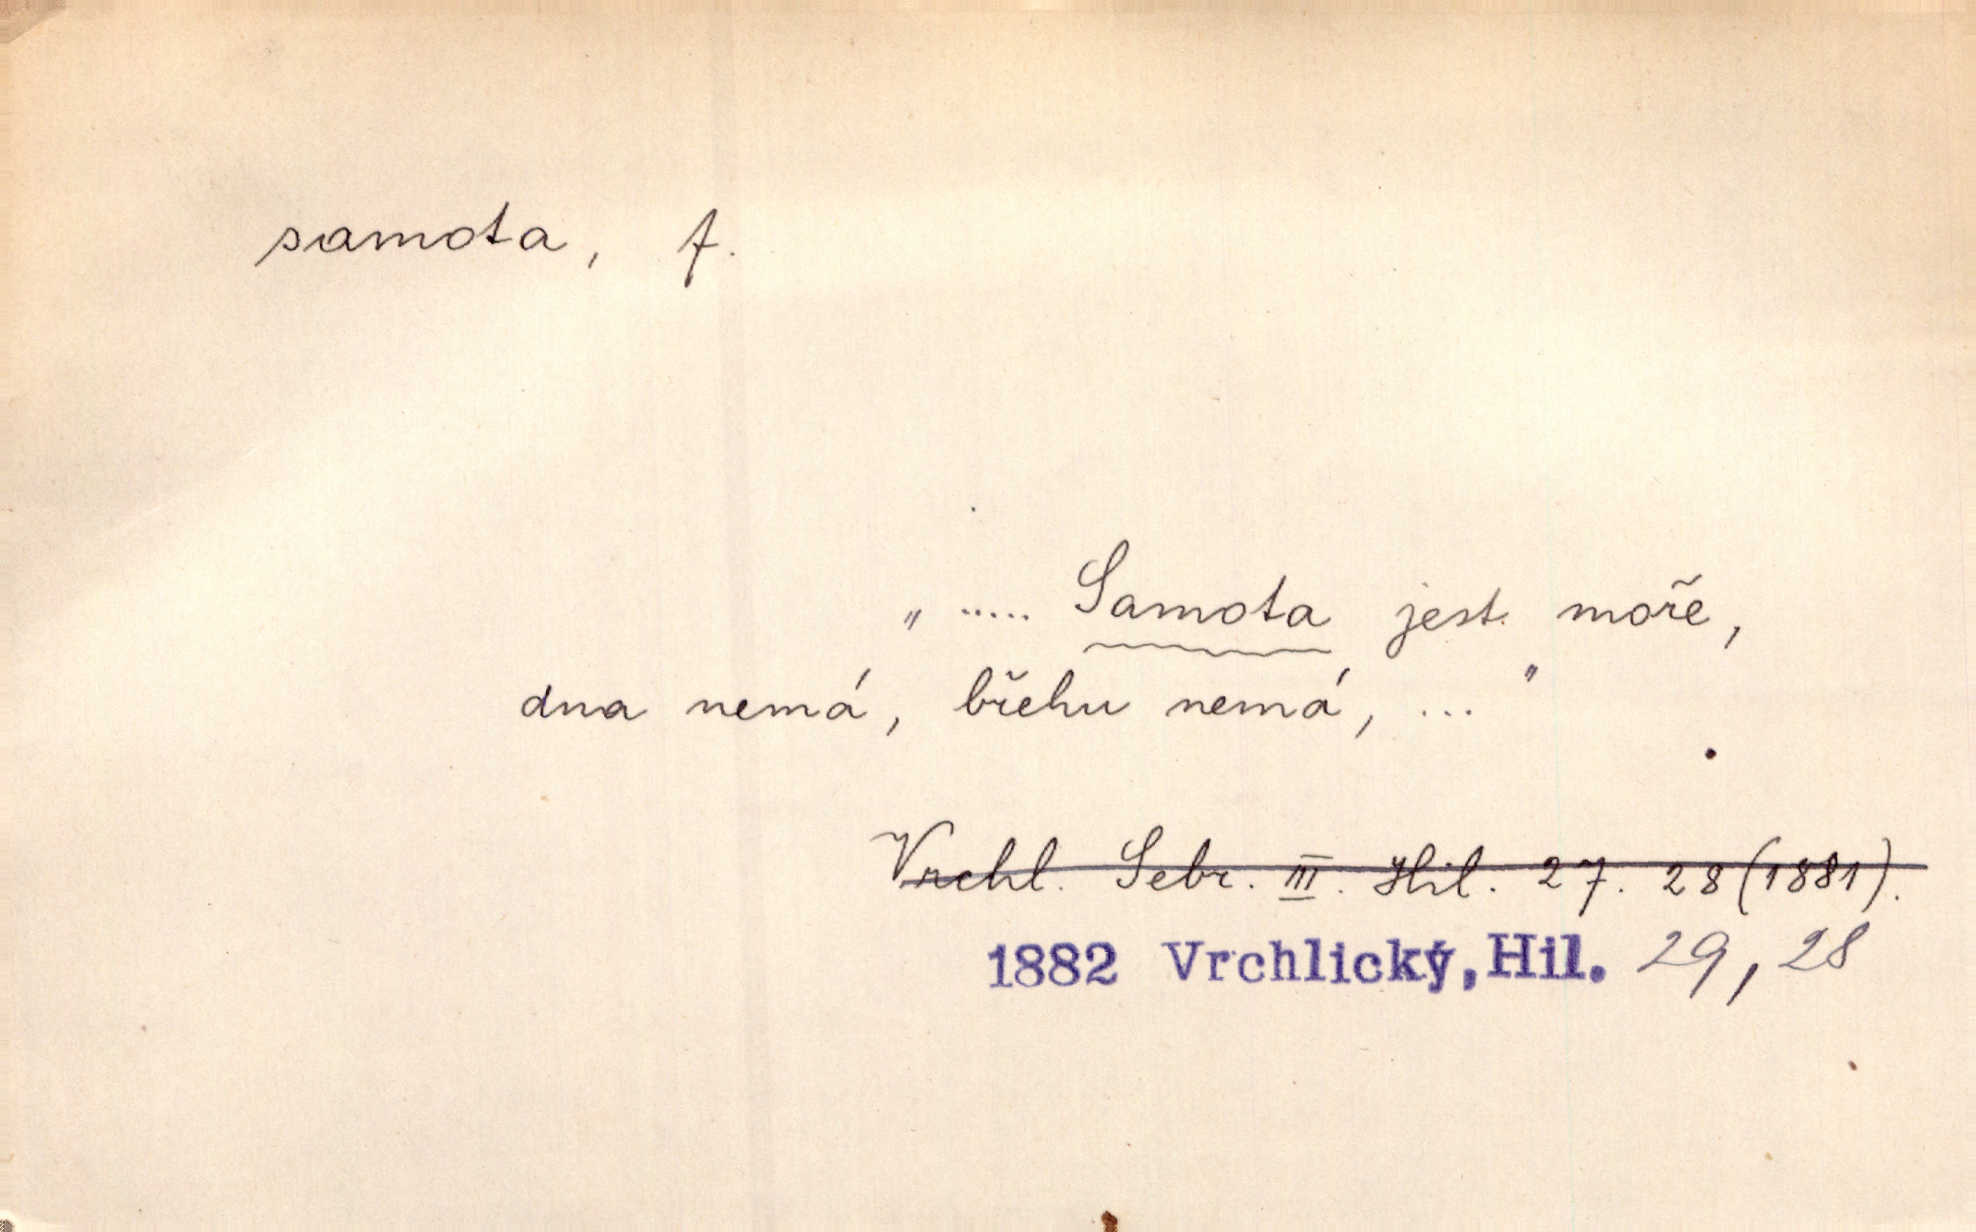 samota, f.
„ ..... Samota jest moře,
dna nemá, břehu nemá, ..."
Vrchl. Sebr. III. Hil. 27. 28 (1881).
1882 Vrchlický, Hil. 29, 28